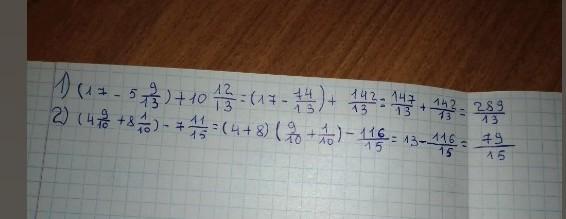 1) (17 - 5 9/13) + 10 12/13 = (17 - 74/13) + 142/13 = 147/13 + 142/13 = 289/13
2) (4 9/10 + 8 1/10) - 7 11/15 = (4 + 8) (9/10 + 1/10) - 116/15 = 13 - 116/15 = 79/15